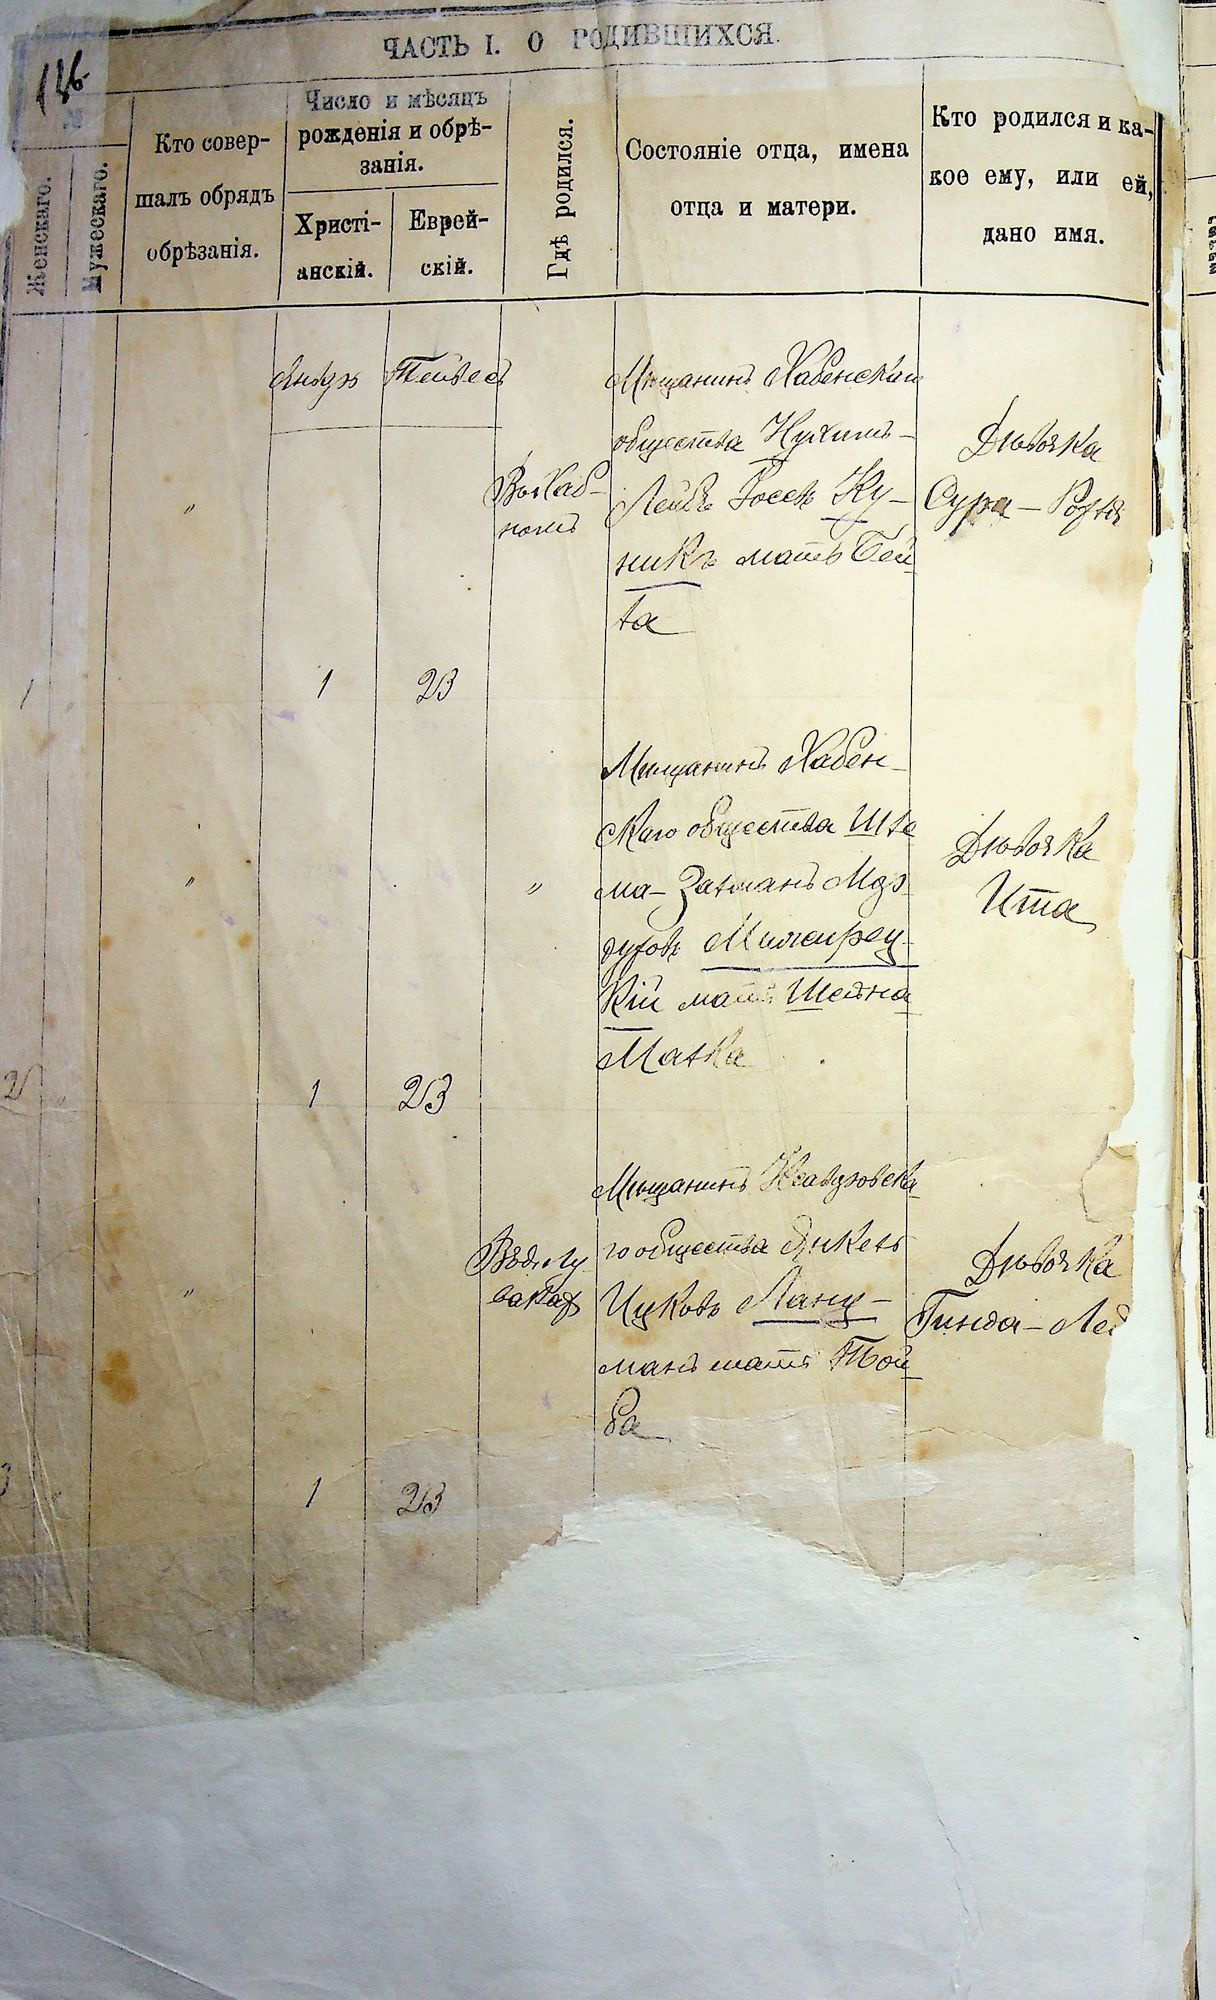 ЧАСТЬ I. О РОДИВШИХСЯ.
116
№
Женскаго.
Мужескаго.
Кто совер-
шалъ обрядъ
обрѣзанія.
Число и мѣсяцъ
рожденія и обрѣ-
занія.
Христі-
анскій.
Еврей-
скій.
Гдѣ родился.
Состояніе отца, имена
отца и матери.
Кто родился и ка-
кое ему, или ей,
дано имя.
1
"
Январь
1
Тейвесъ
23
Въ Хаб-
номъ
Мѣщанинъ Хабенскаго
общества Нухимъ-
Лейбъ Ку-
никъ мать Бей-
ла
Дѣвочка
Сура-
2
"
1
23
"
Мѣщанинъ Хабен-
скаго общества Шле
ма-Залманъ
кій мать Шейна
Малка
Дѣвочка
Ита
3
"
1
23
Мѣщанинъ
го общества Янкель
Ицковъ Ланц-
манъ мать Той-
ба
Дѣвочка
Гинда-Лей